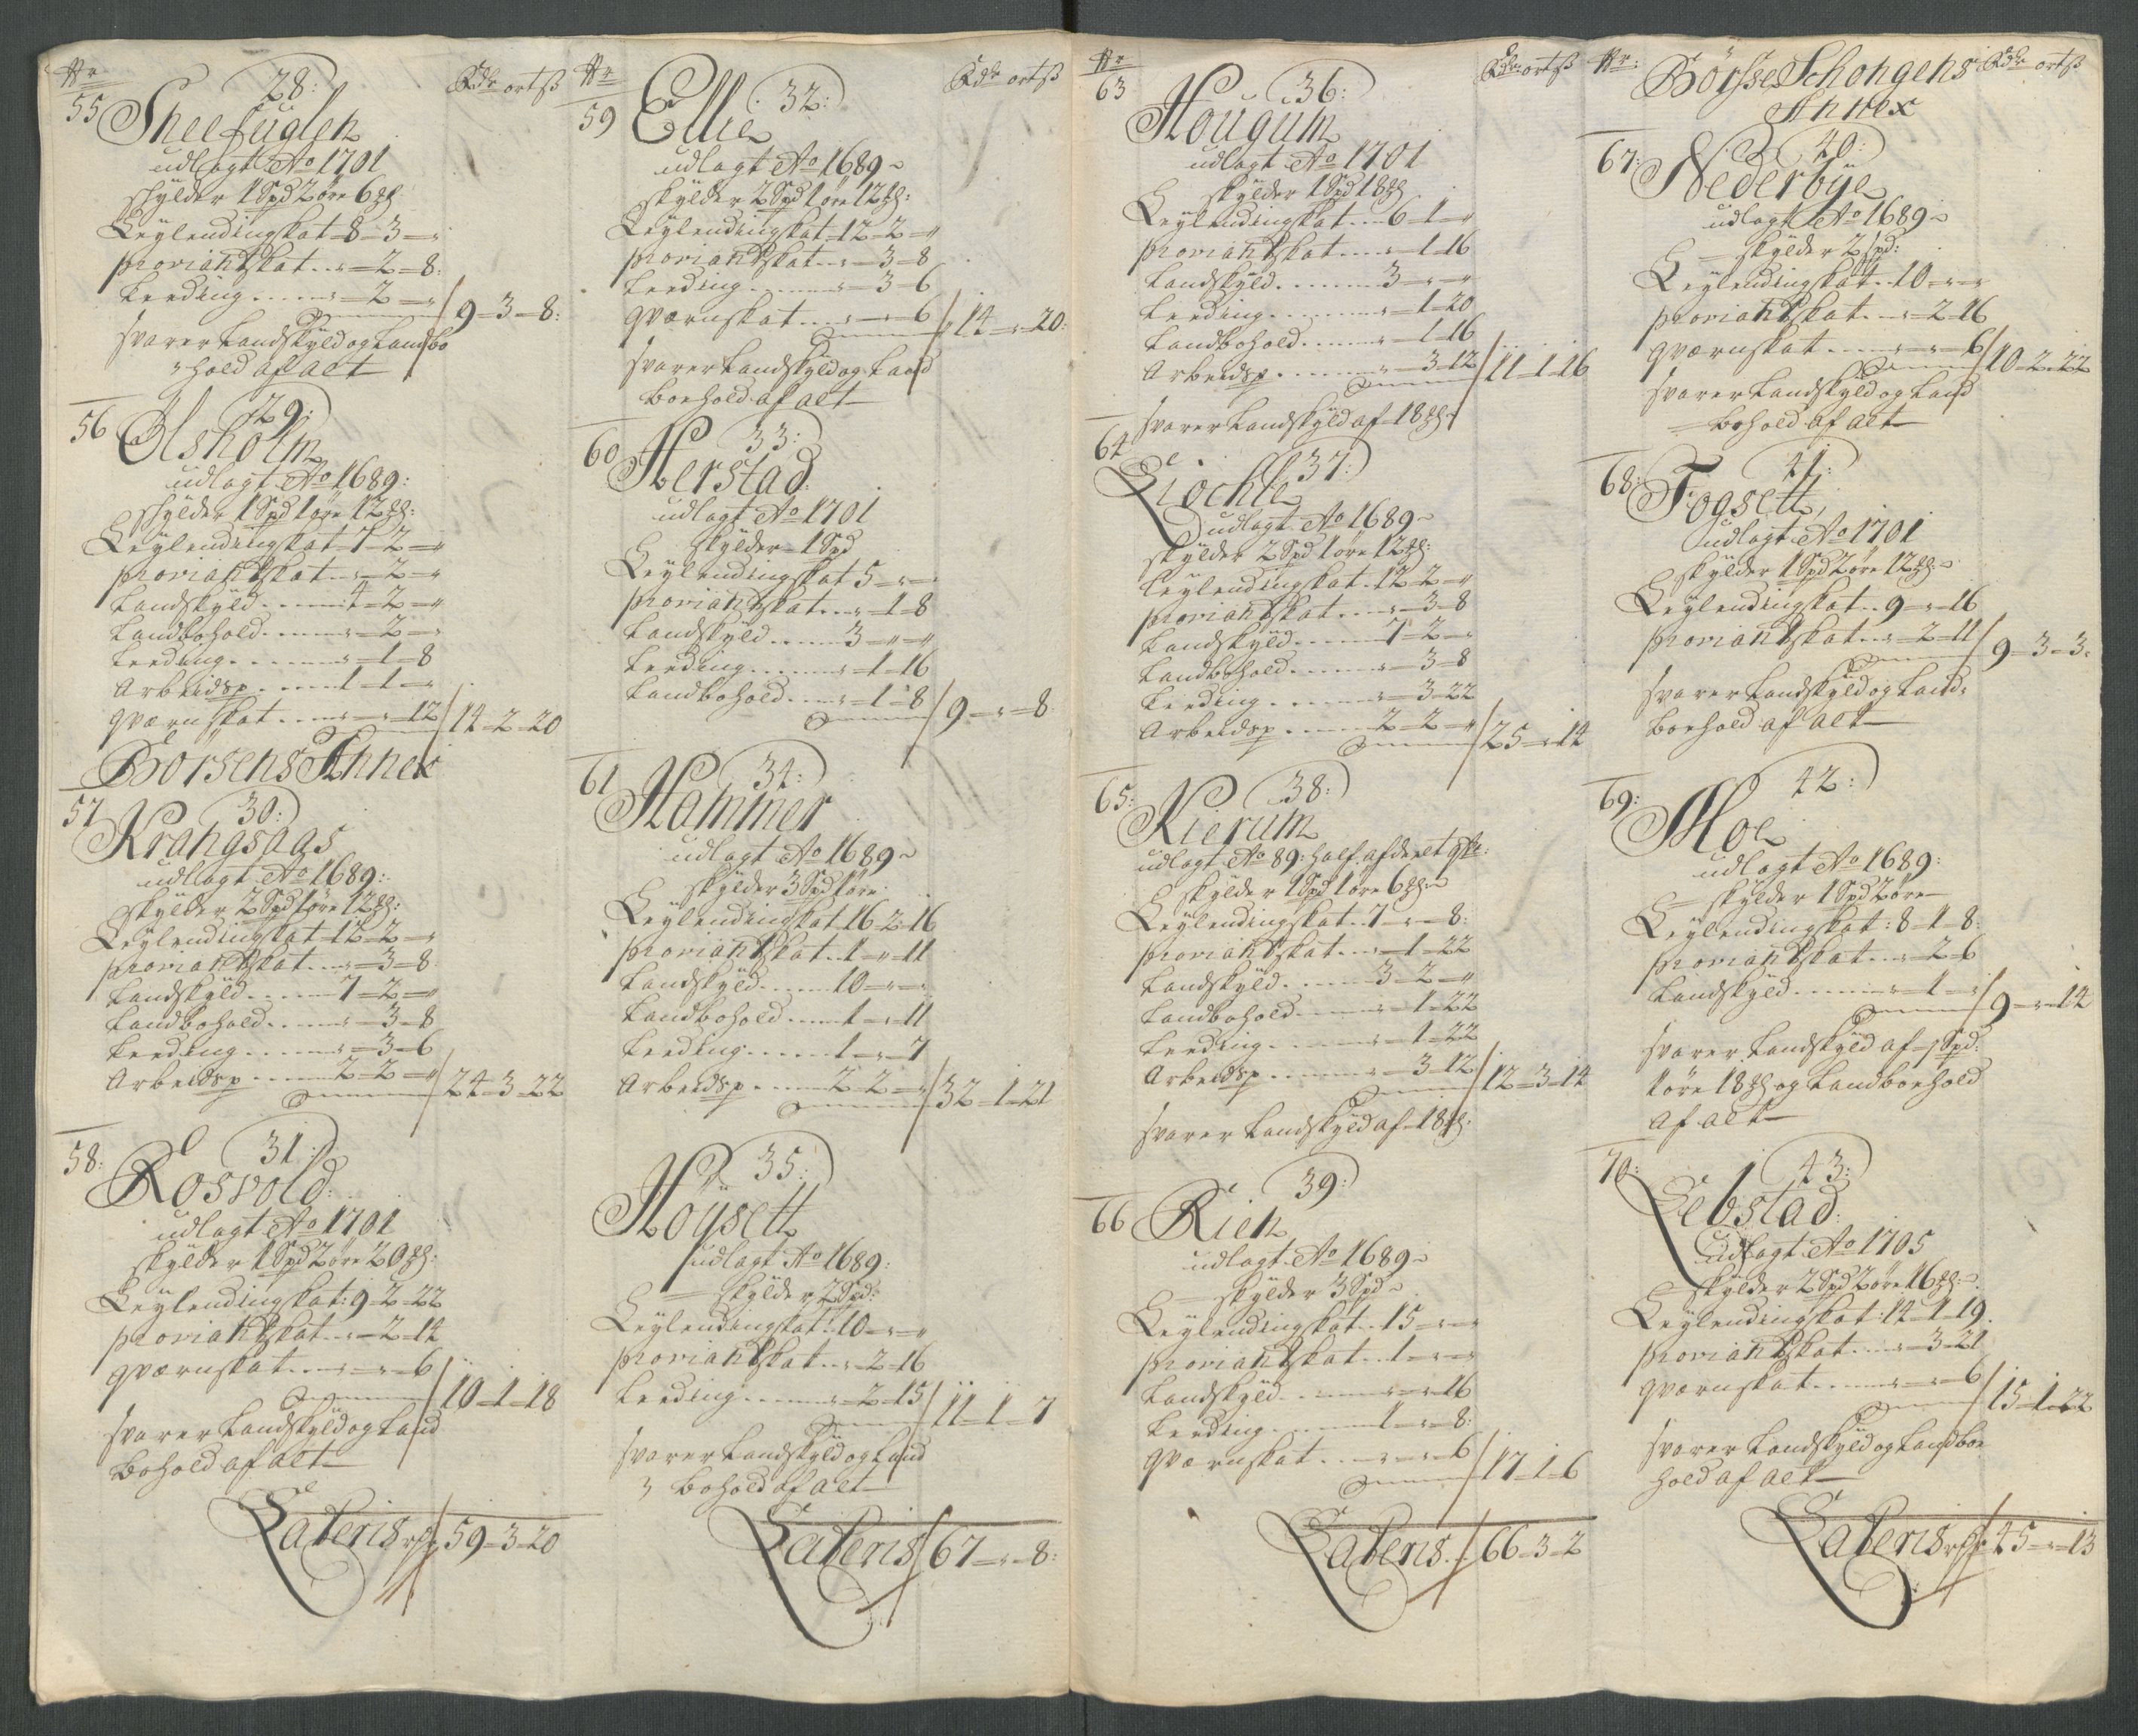 Nr
Rdr ort ß
55
28:
Sneefuglen
udlagt Ao 1701
skylder 1 Spd 2 øre 6 ꝳ
Leylendingskat 8 - 3 - "
proviantskat .. " - 2 - 8:
Leeding ..... " - 2 - " 9 - 3 - 8:
svarer Landskyld og Landbo
hold af alt
56
29:
Olsholm
udlagt Ao 1689:
skylder 1 Spd 1 øre 12 ꝳ:
Leylendingskat 7 - 2 - "
proviantskat .. " - 2 - "
Landskyld ..... 4 - 2 - "
Landbohold ..... " - 2 - "
Leeding ..... " - 1 - 8
Arbeidsp ..... 1 - 1 - "
qværnskat .... " - " - 12 14 - 2 - 20
Børsens Annex
57
30:
Krangsaas
udlagt Ao 1689:
skylder 2 Spd 1 øre 12 ꝳ:
Leylendingskat 12 - 2 - "
proviantskat .. " - 3 - 8
Landskyld ..... 7 - 2 - "
Landbohold ..... " - 3 - 8
Leeding ..... " - 3 - 6
Arbeidsp ..... 2 - 2 - " 24 - 3 - 22
58:
31:
Rosvold:
udlagt Ao 1701
skylder 1 Spd 2 øre 20 ꝳ:
Leylendingskat: 9 - 2 - 22
proviantskat .. " - 2 - 14
qværnskat .... " - " - 6 10 - 1 - 18
svarer Landskyld og Land
bohold af alt
Lateris 59 - 3 - 20
Nr
Rdr ort ß
59
32:
Ellie
udlagt Ao 1689
skylder 2 Spd 1 øre 12 ꝳ:
Leylendingskat 12 - 2 - "
proviantskat .. " - 3 - 8
Leeding ..... " - 3 - 6
qværnskat .... " - " - 6 14 - " - 20:
svarer Landskyld og Land
boehold af alt
60
33:
Herstad
udlagt Ao 1701
skylder 1 Spd
Leylendingskat 5 - " - "
proviantskat .. " - 1 - 8
Landskyld ..... 3 - " - "
Leeding ..... " - 1 - 16
Landbohold .... " - 1 - 8 9 - " - 8
61
34:
Hammer
udlagt Ao 1689
skylder 3 Spd 1 øre
Leylendingskat 16 - 2 - 16
proviantskat .. 1 - " - 11
Landskyld ..... 10 - " - "
Landbohold ..... 1 - " - 11
Leeding ..... 1 - " - 7
Arbeidsp ..... 2 - 2 - " 32 - 1 - 21
35:
Høysett
udlagt Ao 1689:
skylder 2 Spd:
Leylendingskat: 10 - " - "
proviantskat .. " - 2 - 16
Leeding ..... " - 2 - 15 11 - 1 - 7
svarer Landskyld og Land
bohold af alt
Lateris 67 - " - 8:
Nr
Rdr ort ß
63
36:
Hougum
udlagt Ao 1701
skylder 1 Spd 18 ꝳ
Leylendingskat .. 6 - 1 - "
proviantskat .... " - 1 - 16
Landskyld ..... 3 - " - "
Leeding ..... " - 1 - 20
Landbohold ..... " - 1 - 16
Arbeidsp ..... " - 3 - 12 11 - 1 - 16
svarer Landskyld af 18 ꝳ
64
37:
udlagt Ao 1689
skylder 2 Spd 1 øre 12 ꝳ:
Leylendingskat .. 12 - 2 - "
proviantskat .... " - 3 - 8
Landskyld ..... 7 - 2 - "
Landbohold ..... " - 3 - 8
Leeding ..... " - 3 - 22
Arbeidsp ..... 2 - 2 - " 25 - " - 14
65:
38:
Kierum
udlagt Ao 89: half afderet
skylder 1 Spd 1 øre 6 ꝳ
Leylendingskat .. 7 - " - 8:
proviantskat .... " - 1 - 22
Landskyld ..... 3 - 2 - "
Landbohold ..... " - 1 - 22
Leeding ..... " - 1 - 22
Arbeidsp ..... " - 3 - 12 12 - 3 - 14
svarer Landskyld af 18 ꝳ:
66
39:
Rien
udlagt Ao 1689
skylder 3 Spd
Leylendingskat .. 15 - " - "
proviantskat .. 1 - " - "
Landskyld ..... " - " - 16
Leeding ..... 1 - " - 8:
qværnskat .... " - " - 6 17 - 1 - 6
Lateris 66 - 3 - 2
Nr:
Børsse Schongens
Annex
Rdr ort ß
67:
40:
Nederbye
udlagt Ao 1689
skylder 2 Spd:
Leylendingskat .. 10 - " - "
proviantskat .. " - 2 - 16
qværnskat .... " - " - 6 10 - 2 - 22
svarer Landskyld og Land
bohold af alt
68:
41:
Fogsett
udlagt Ao 1701
skylder 1 Spd 2 øre 12 ꝳ
Leylendingskat .. 9 - " - 16
proviantskat .. " - 2 - 11 9 - 3 - 3
svarer Landskyld og Land
boehold af alt
69:
42:
Moe
udlagt Ao 1689:
skylder 1 Spd 2 øre
Leylendingskat: 8 - 1 - 8:
proviantskat .. " - 2 - 6
Landskyld ..... " - 1 - " 9 - " - 14
svarer Landskyld af 1 Spd:
1 øre 18 ꝳ og Landboehold
af alt
70:
43:
Lebstad
udlagt Ao 1705
skylder 2 Spd 2 øre 16 ꝳ
Leylendingskat: 14 - 1 - 19
proviantskat .... " - 3 - 21
qværnskat .... " - " - 6 15 - 1 - 22
svarer Landskyld og Landboe
hold af alt
Lateris 45 - " - 13